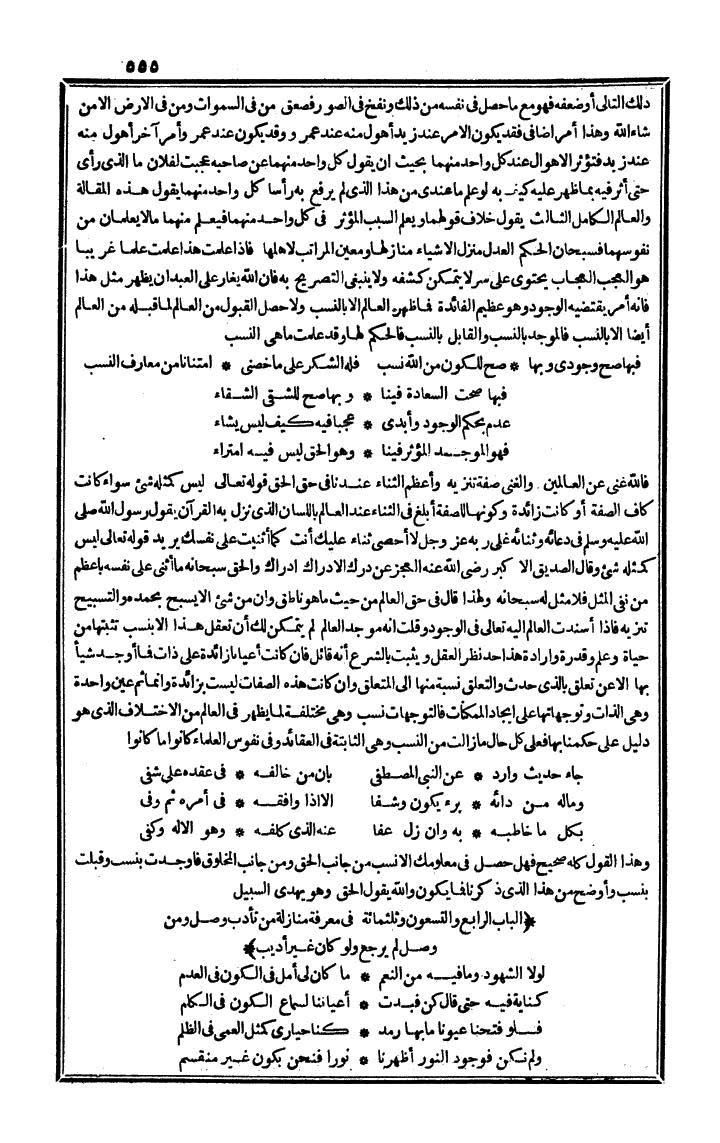 ٥٥٥
ذلك التالى أو ضعفه فهو مع ما حصل فى نفسه من ذلك ونفخ فى الصور فصعق من فى السموات ومن فى الارض الا من
شاء الله وهذا أمر اضافى فقد يكون الامر عند زيد أهول منه عند عمرو وقد يكون عند عمر وأمر آخر أهول منه
عند زيد فتؤثر الاهوال عند كل واحد منهما بحيث ان يقول كل واحد منهما عن صاحبه عجبت لفلان ما الذى رأى
حتى أثر فيه بما ظهر عليه كيف به لو علم ما عندى من هذا الذى لم يرفع به رأسا كل واحد منهما يقول هذه المقالة
والعالم الكامل الثالث يقول خلاف قولهما ويعلم السبب المؤثر فى كل واحد منهما فيعلم منهما ما لا يعلمان من
نفوسهما فسبحان الحكيم العدل منزل الاشياء منازلها ومعين المراتب لاهلها فاذا علمت هذا علمت علما غريبا
هو العجب العجاب يحتوى على سر لا يتمكن كشفه ولا ينبغى التصريح به فان الله يغار على العبد ان يظهر مثل هذا
فانه أمر يقتضيه الوجود وهو عظيم الفائدة فما ظهر العالم الا بالنسب ولا حصل القبول من العالم لما قبله من العالم
أيضا الا بالنسب فالموجد بالنسب والقابل بالنسب فالحكم لها وقد علمت ما هى النسب
فبها صح وجودى وبها * صح للكون من الله نسب فله الشكر على ما خصنى * امتنانا من معارف النسب
فبها صحت السعادة فينا * وبها صح للشقى الشقاء
عدم يحكم الوجود وأبدى * عجبا فيه كيف ليس يشاء
فهو الموجد المؤثر فينا * وهو الحق ليس فيه امتراء
فالله غنى عن العالمين والغنى صفة تنزيه وأعظم الثناء عندنا فى حق الحق قوله تعالى ليس كمثله شئ سواء كانت
كاف الصفة أو كانت زائدة وكونها للصفة أبلغ فى الثناء عند العالم باللسان الذى نزل به القرآن يقول رسول الله صلى
الله عليه وسلم فى دعائه وثنائه على ربه عز وجل لا أحصى ثناء عليك أنت كما أثنيت على نفسك يريد قوله تعالى ليس
كمثله شئ وقال الصديق الاكبر رضى الله عنه العجز عن درك الادراك ادراك والحق سبحانه ما أثنى على نفسه باعظم
من نفى المثل فلا مثل له سبحانه ولهذا قال فى حق العالم من حيث ما هو ناطق وان من شئ الا يسبح بحمده والتسبيح
تنزيه فاذا أسندت العالم اليه تعالى فى الوجود وقلت انه موجد العالم لم يتمكن لك أن تعقل هذا الا بنسب تثبتها من
حياة وعلم وقدرة وارادة هذا حد نظر العقل ويثبت بالشرع أنه قائل فان كانت أعيانا زائدة على ذات فما أوجد شيأ
بها الا عن تعلق بالذى حدث والتعلق نسبة منها الى المتعلق وان كانت هذه الصفات ليست بزائدة وانما ثم عين واحدة
وهى الذات وتوجهاتها على ايجاد الممكنات فالتوجهات نسب وهى مختلفة لما يظهر فى العالم من الاختلاف الذى هو
دليل على حكمنا بها فعلى كل حال ما زالت من النسب وهى الثابتة فى العقائد وفى نفوس العلماء كانوا ما كانوا
جاء حديث وارد * عن النبى المصطفى بان من خالفه * فى عقده على شفى
وماله من دائه * برء يكون وشفا الا اذا وافقه * فى أمره ثم وفى
بكل ما خاطبه * به وان زل عفا عنه الذى كلفه * وهو الاله وكفى
وهذا القول كله صحيح فهل حصل فى معلومك الا نسب من جانب الحق ومن جانب المخلوق فاوجدت بنسب وقبلت
بنسب وأوضح من هذا الذى ذكرنا فما يكون والله يقول الحق وهو يهدى السبيل
﴿الباب الرابع والتسعون وثلثمائة فى معرفة منازلة من تأدب وصل ومن
وصل لم يرجع ولو كان غير أديب﴾
لولا الشهود وما فيه من النعم * ما كان لى أمل فى الكون فى العدم
كناية فيه حتى قال كن فبدت * أعياننا لسماع الكون فى الكلم
فلو فتحنا عيونا ما بها رمد * كنا حيارى كمثل العمى فى الظلم
ولم نكن فوجود النور أظهرنا * نورا فنحن بكون غير منقسم